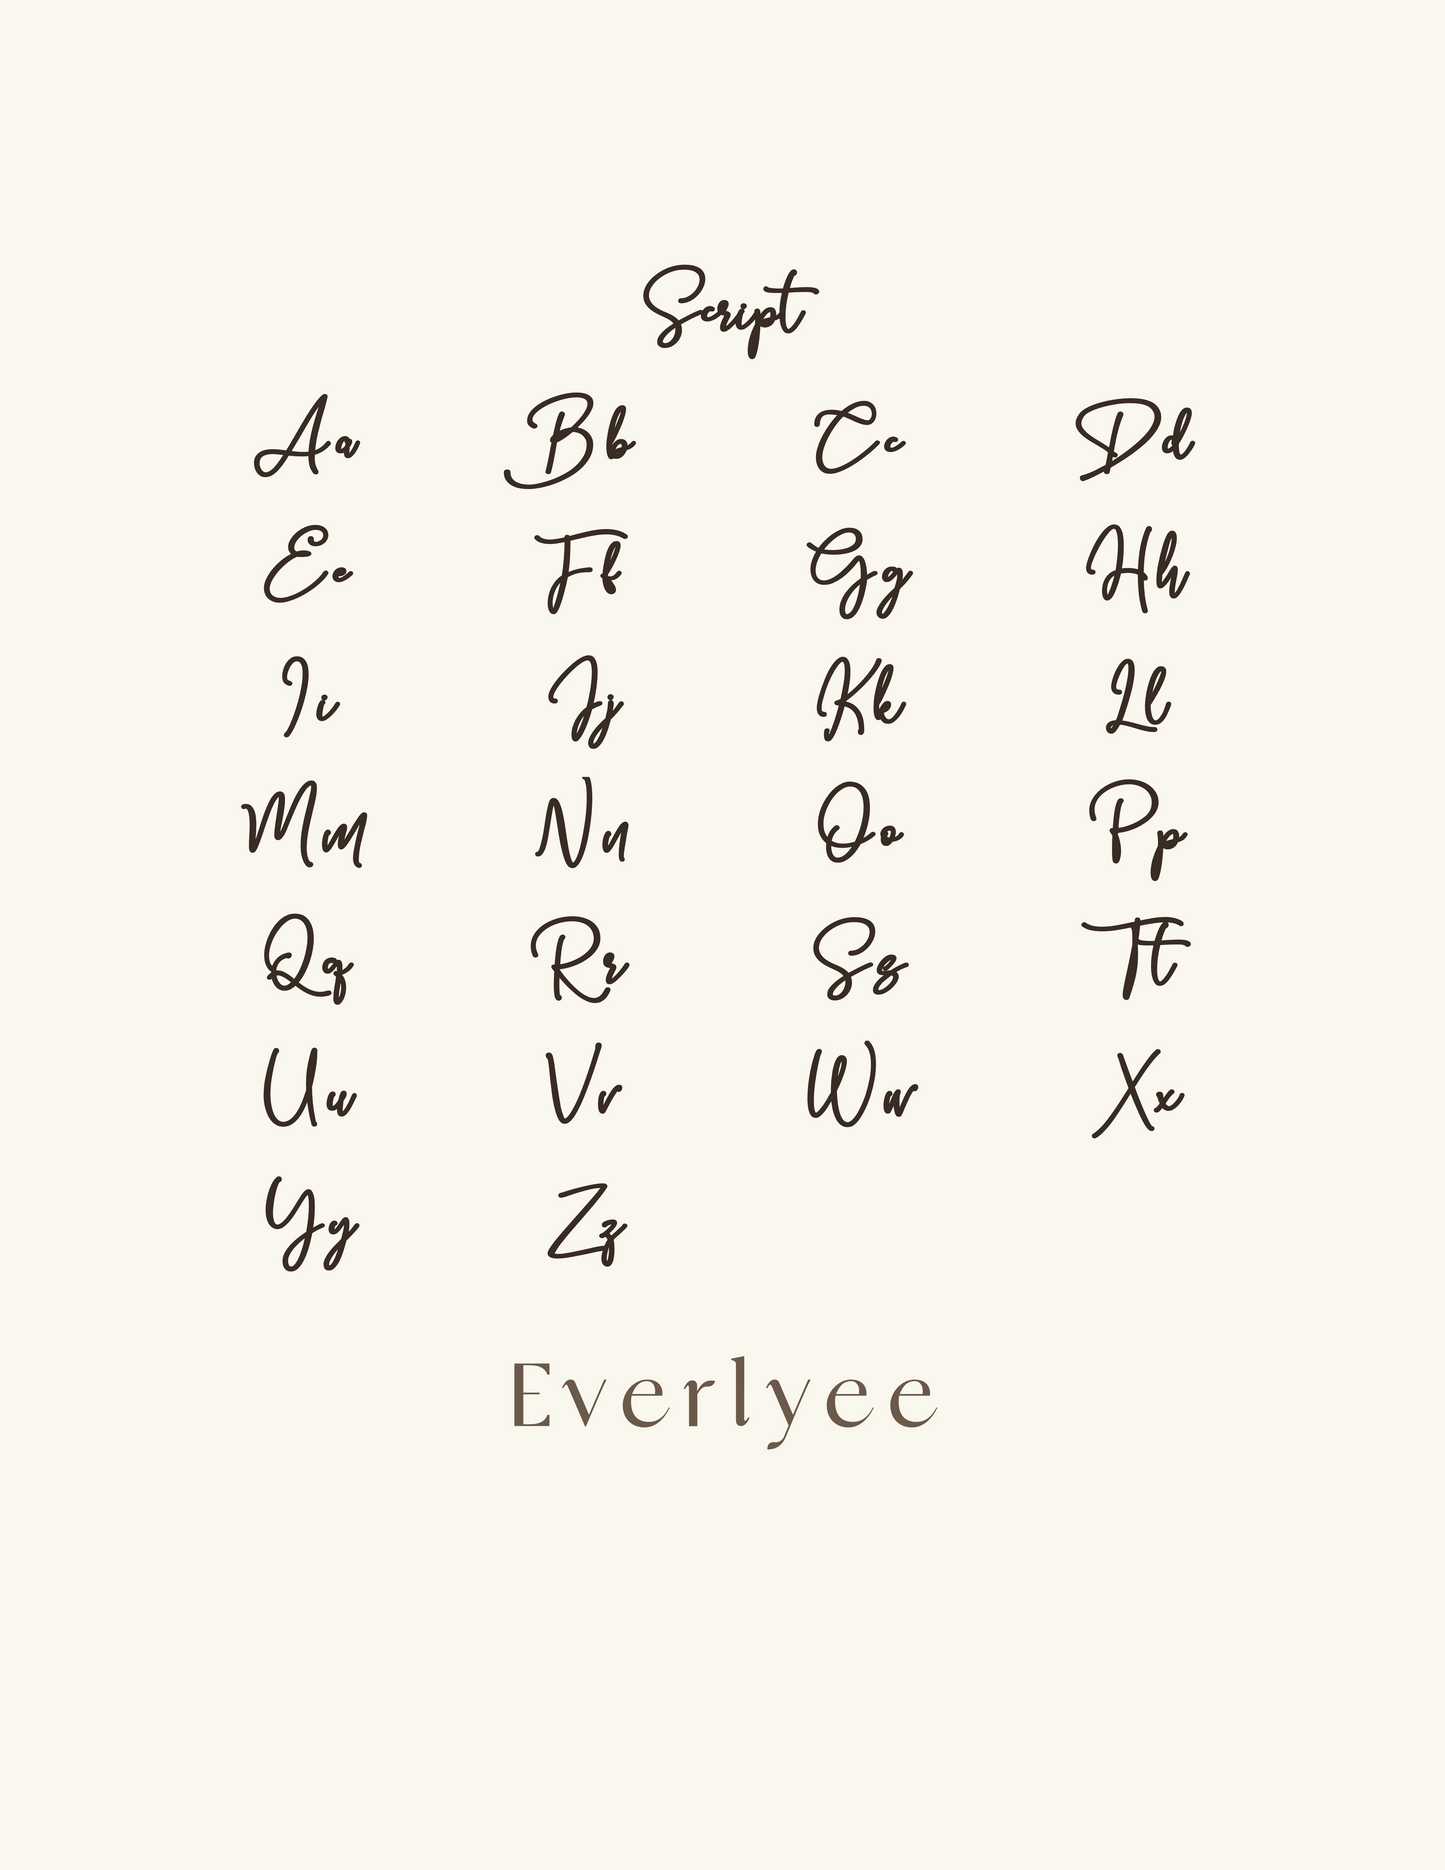 Script
Aa Bb Cc Dd
Ee Ff Gg Hh
Ii Jj Kk Ll
Mm Nn Oo Pp
Qq Rr Ss Tt
Uu Vv Ww Xx
Yy Zz
Everlyee